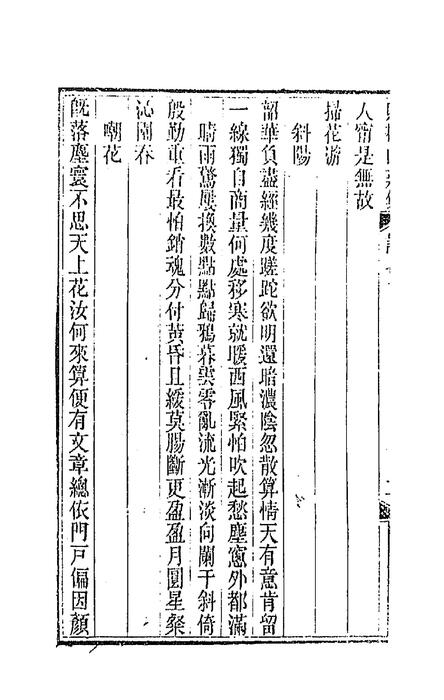 人甯是無故
掃花游
斜陽
韶華負盡經幾度蹉跎欲明還暗濃陰忽散算情天有意肯留
一線獨自商量何處移寒就暖西風緊怕吹起愁塵窻外都滿
晴雨驚屢換數點點歸鴉暮雲零亂流光漸淡向闌干斜倚
殷勤重看最怕銷魂分付黃昏且緩莫腸斷更盈盈月圓星粲
沁園春
嘲花
旣落塵寰不思天上花汝何來算便有文章總依門戸偏因顏